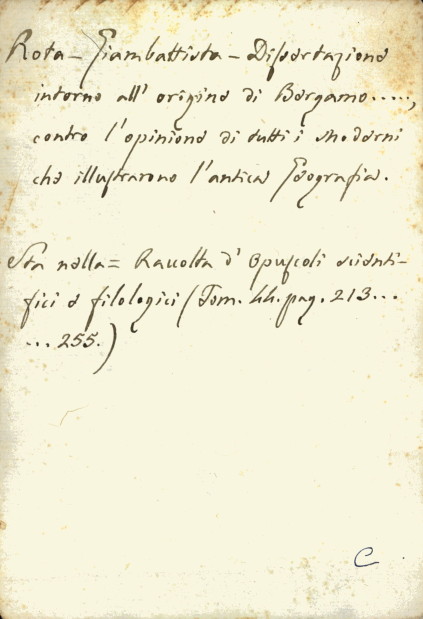 Rota - Giambattista - Dissertazione
intorno all' origine di Bergamo.....,
contro l'opinione di tutti i Moderni
che illustrarono l'antica Geografia.
Sta nella = Raccolta d' Opuscoli scienti-
fici e filologici (Tom. 44. pag. 213...
... 255.)
C